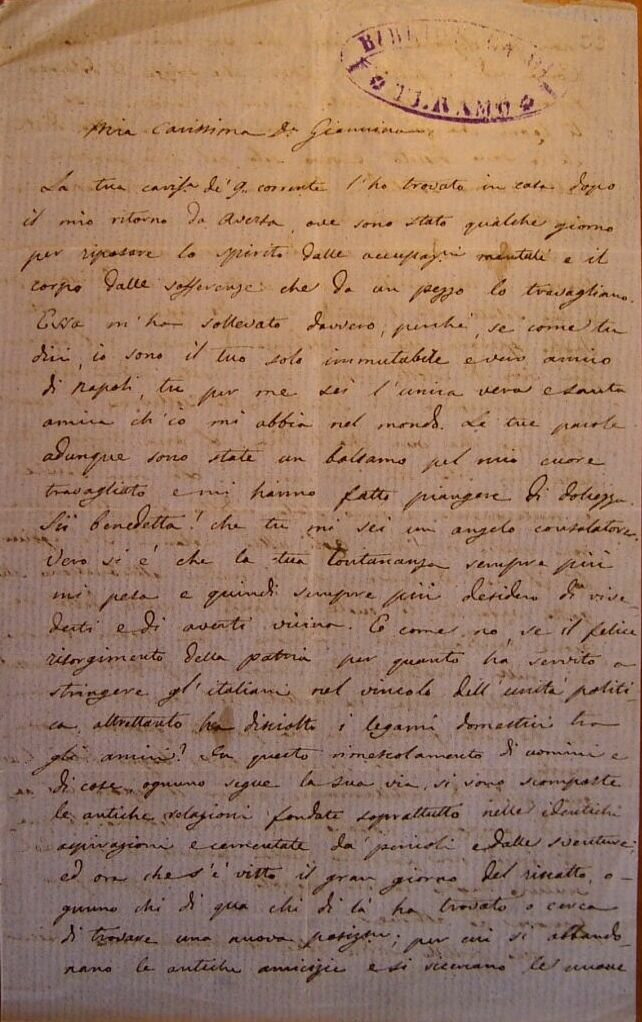 BIBLIOTECA DI
TERAMO
Mia carissima Dª Giannina
La tua carisª de' 9 corrente l'ho trovato in casa dopo
il mio ritorno da Aversa, ove sono stato qualche giorno
per riposare lo spirito dalle occupazni mentali e il
corpo dalle sofferenze che da un pezzo lo travagliano.
Essa m'ha sollevato davvero, perchè, se come tu
dici, io sono il tuo solo immutabile e vero amico
di Napoli, tu per me sei l'unica vera e santa
amica ch'io mi abbia nel mondo. Le tue parole
adunque sono state un balsamo pel mio cuore
travagliato e mi hanno fatto piangere di dolcezza.
Sii benedetta! che tu mi sei un angelo consolatore.
Vero si è che la tua lontananza sempre più
mi pesa e quindi sempre più desidero di rive-
derti e di averti vicina. E come no, se il felice
risorgimento della patria per quanto ha servito a
stringere gl'italiani nel vincolo dell'unità politi-
ca, altrettanto ha disciolto i legami domestici tra
gli amici? In questo rimescolamento di uomini e
di cose, ognuno segue la sua via, si sono scomposte
le antiche relazioni fondate soprattutto nelle identiche
aspirazioni e cementate da' pericoli e dalle sventure;
ed ora che s'è visto il gran giorno del riscatto, o-
gnuno chi di qua chi di là ha trovato o cerca
di trovare una nuova posizne; per cui si abbando-
nano le antiche amicizie e si scemano le nuove